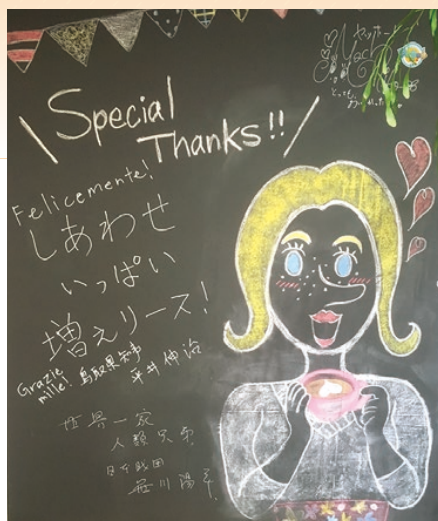 Special
Thanks!!
Felicemente!
しあわせ
いっぱい
増えリース!
Grazie
mille! 鳥取県知事
平井伸治
世界一家
人類兄弟